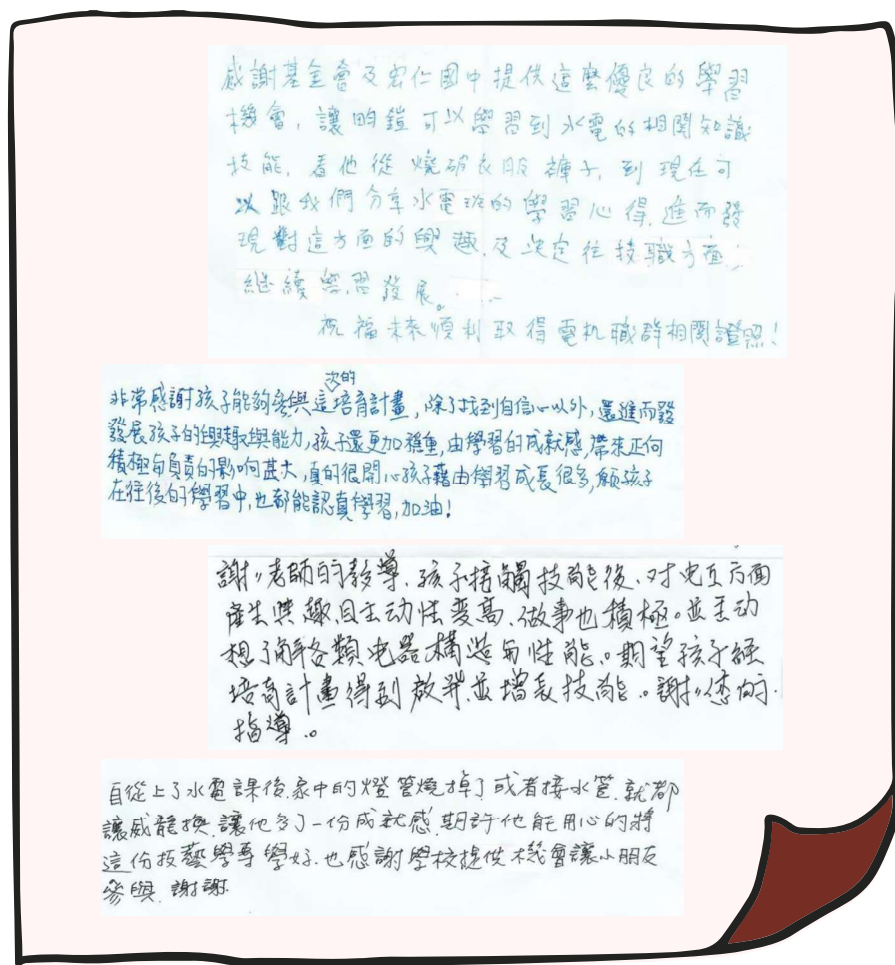 感謝基金會及宏仁國中提供這麼優良的學習
機會，讓昀鎧可以學習到水電的相關知識
技能，看他從燒破衣服褲子，到現在可
以跟我們分享水電班的學習心得，進而發
現對這方面的興趣，及決定往技職方面
繼續學習發展。
祝福未來順利取得電机職群相關證照！
次的
非常感謝孩子能夠參與這培育計畫，除了找到自信心以外，還進而發
發展孩子的興趣與能力，孩子還更加穩重，由學習的成就感，帶來正向
積極与負責的影响甚大，真的很開心孩子藉由學習成長很多，願孩子
在往後的學習中，也都能認真學習，加油！
謝〃老師的教導，孩子接觸技能後，对电工方面
產生興趣，且主动性变高，做事也積極。並主动
想了解各類电器構造与性能。期望孩子經
培育計畫得到啟發並增長技能。謝〃您的
指導。
自從上了水電課後，家中的燈管燒掉了或者接水管，就都
讓威龍換，讓他多了一份成就感，期許他能用心的將
這份技藝學專學好，也感謝學校提供機會讓小朋友
參與，謝謝